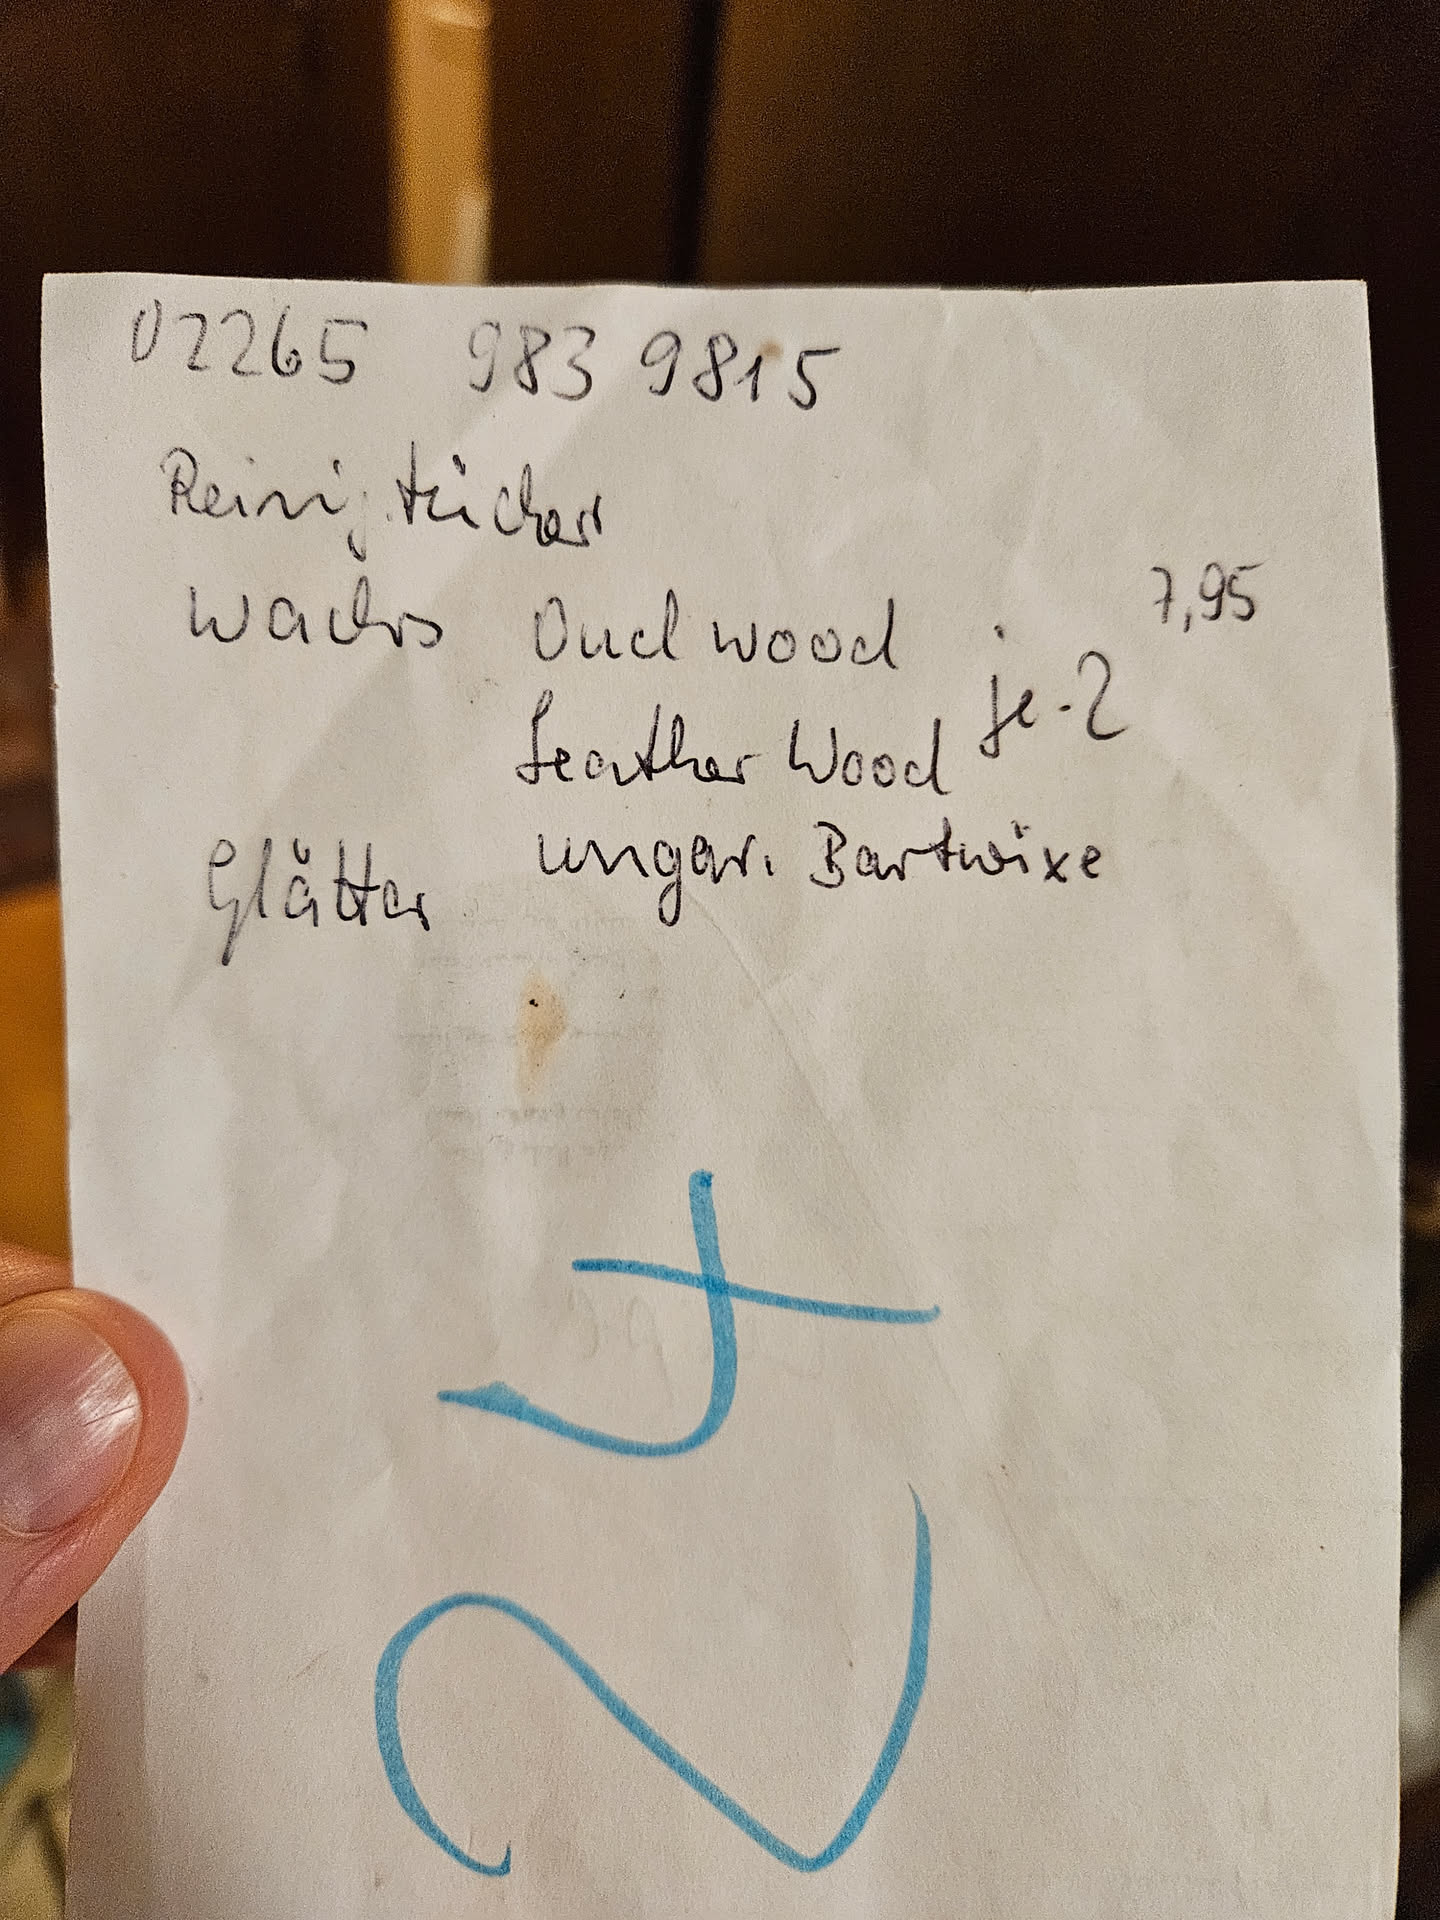 02265 983 9815
Reinig.tücher
Wachs Oud wood je. 2 7,95
Leather Wood
ungar. Bartwixe
Glätter
24